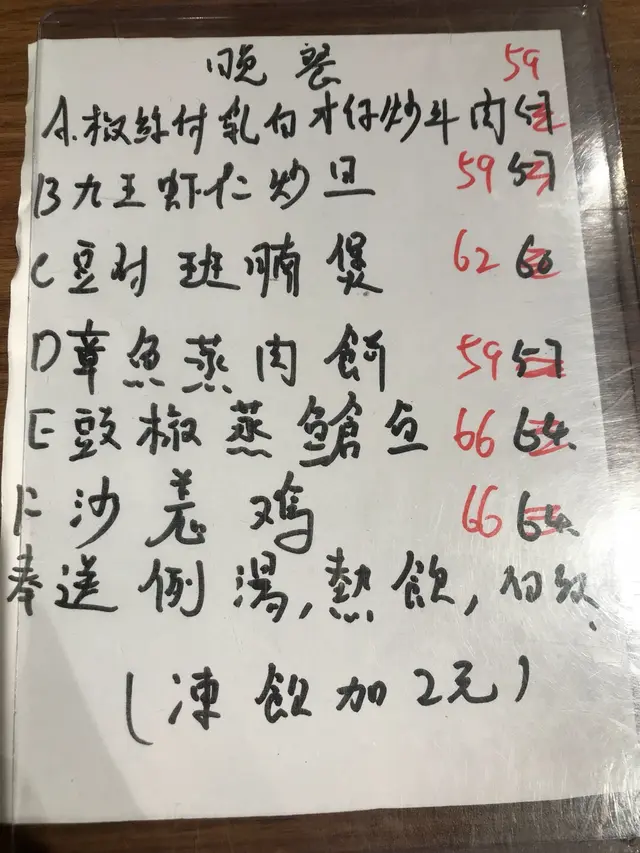 晚餐
A.椒絲付乳白才仔炒斗肉 59 57
B 九王虾仁炒旦 59 57
C 豆付班腩煲 62 60
D 章魚蒸肉餅 59 57
E 豉椒蒸鱠魚 66 64
F 沙羌鸡 66 64
奉送例湯,熱飲,白飯
(凍飲加2元)